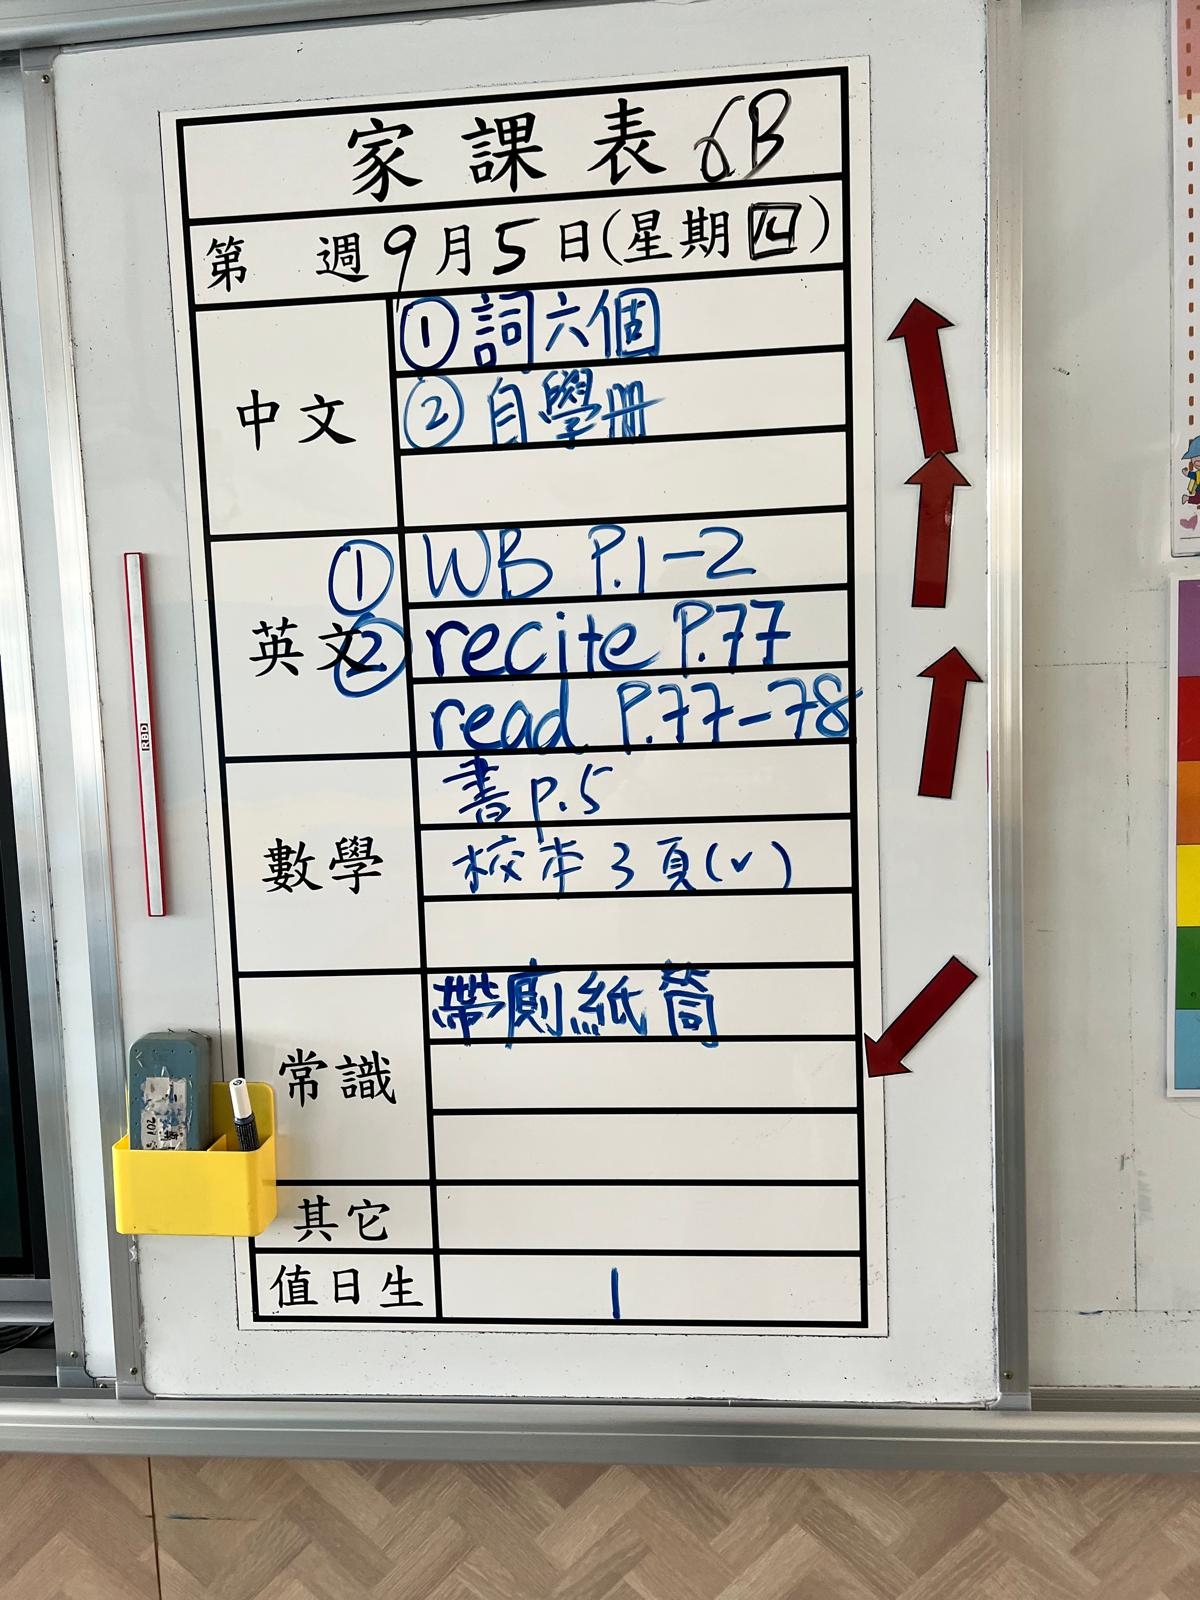 家課表 6B
第 週 9月5日(星期四)
中文
① 詞六個
② 自學冊
英文
① WB P.1-2
② recite P.77
read P.77-78
數學
書 p.5
校本3頁(✓)
常識
帶廁紙筒
其它
值日生
1
RBD